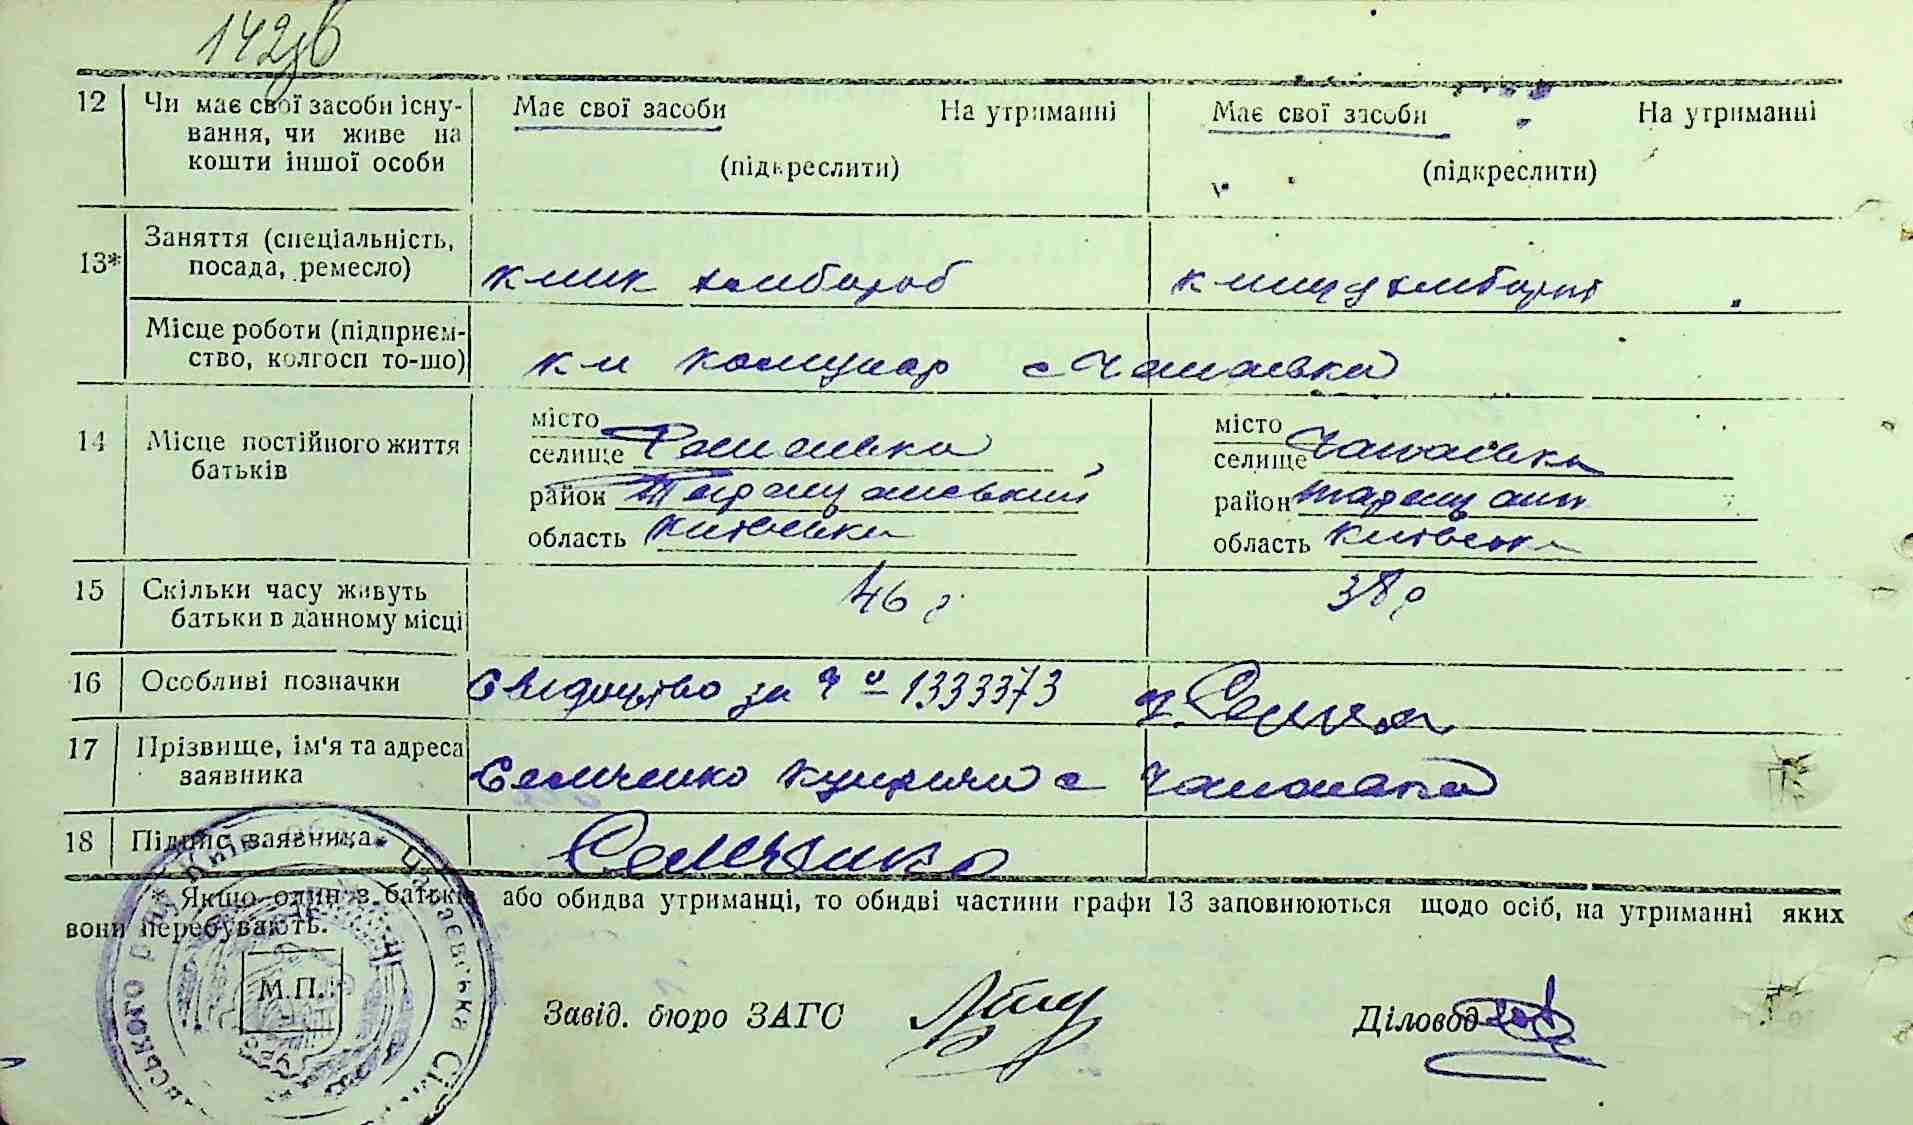 142зв
12 Чи має свої засоби існу- Має свої засоби На утриманні Має свої засоби На утриманні
вання, чи живе на
кошти іншої особи (підкреслити) (підкреслити)
13* Заняття (спеціальність,
посада, ремесло)
Місце роботи (підприєм-
ство, колгосп то-що) Комунар с Чапаєвка
14 Місце постійного життя
батьків
місто
селище
район Таращанський
область Київська
місто
селище Чапаєвка
район Таращан
область Київська
15 Скільки часу живуть
батьки в данному місці 46 р 38 р
16 Особливі позначки Свидоцтво за № 1333373
17 Прізвище, ім'я та адреса
заявника Семченко с Чапаєвка
18 Підпис заявника Семченко
Якщо один з батьків або обидва утриманці, то обидві частини графи 13 заповнюються щодо осіб, на утриманні яких
вони перебувають.
М.П.
Завід. бюро ЗАГС Діловод